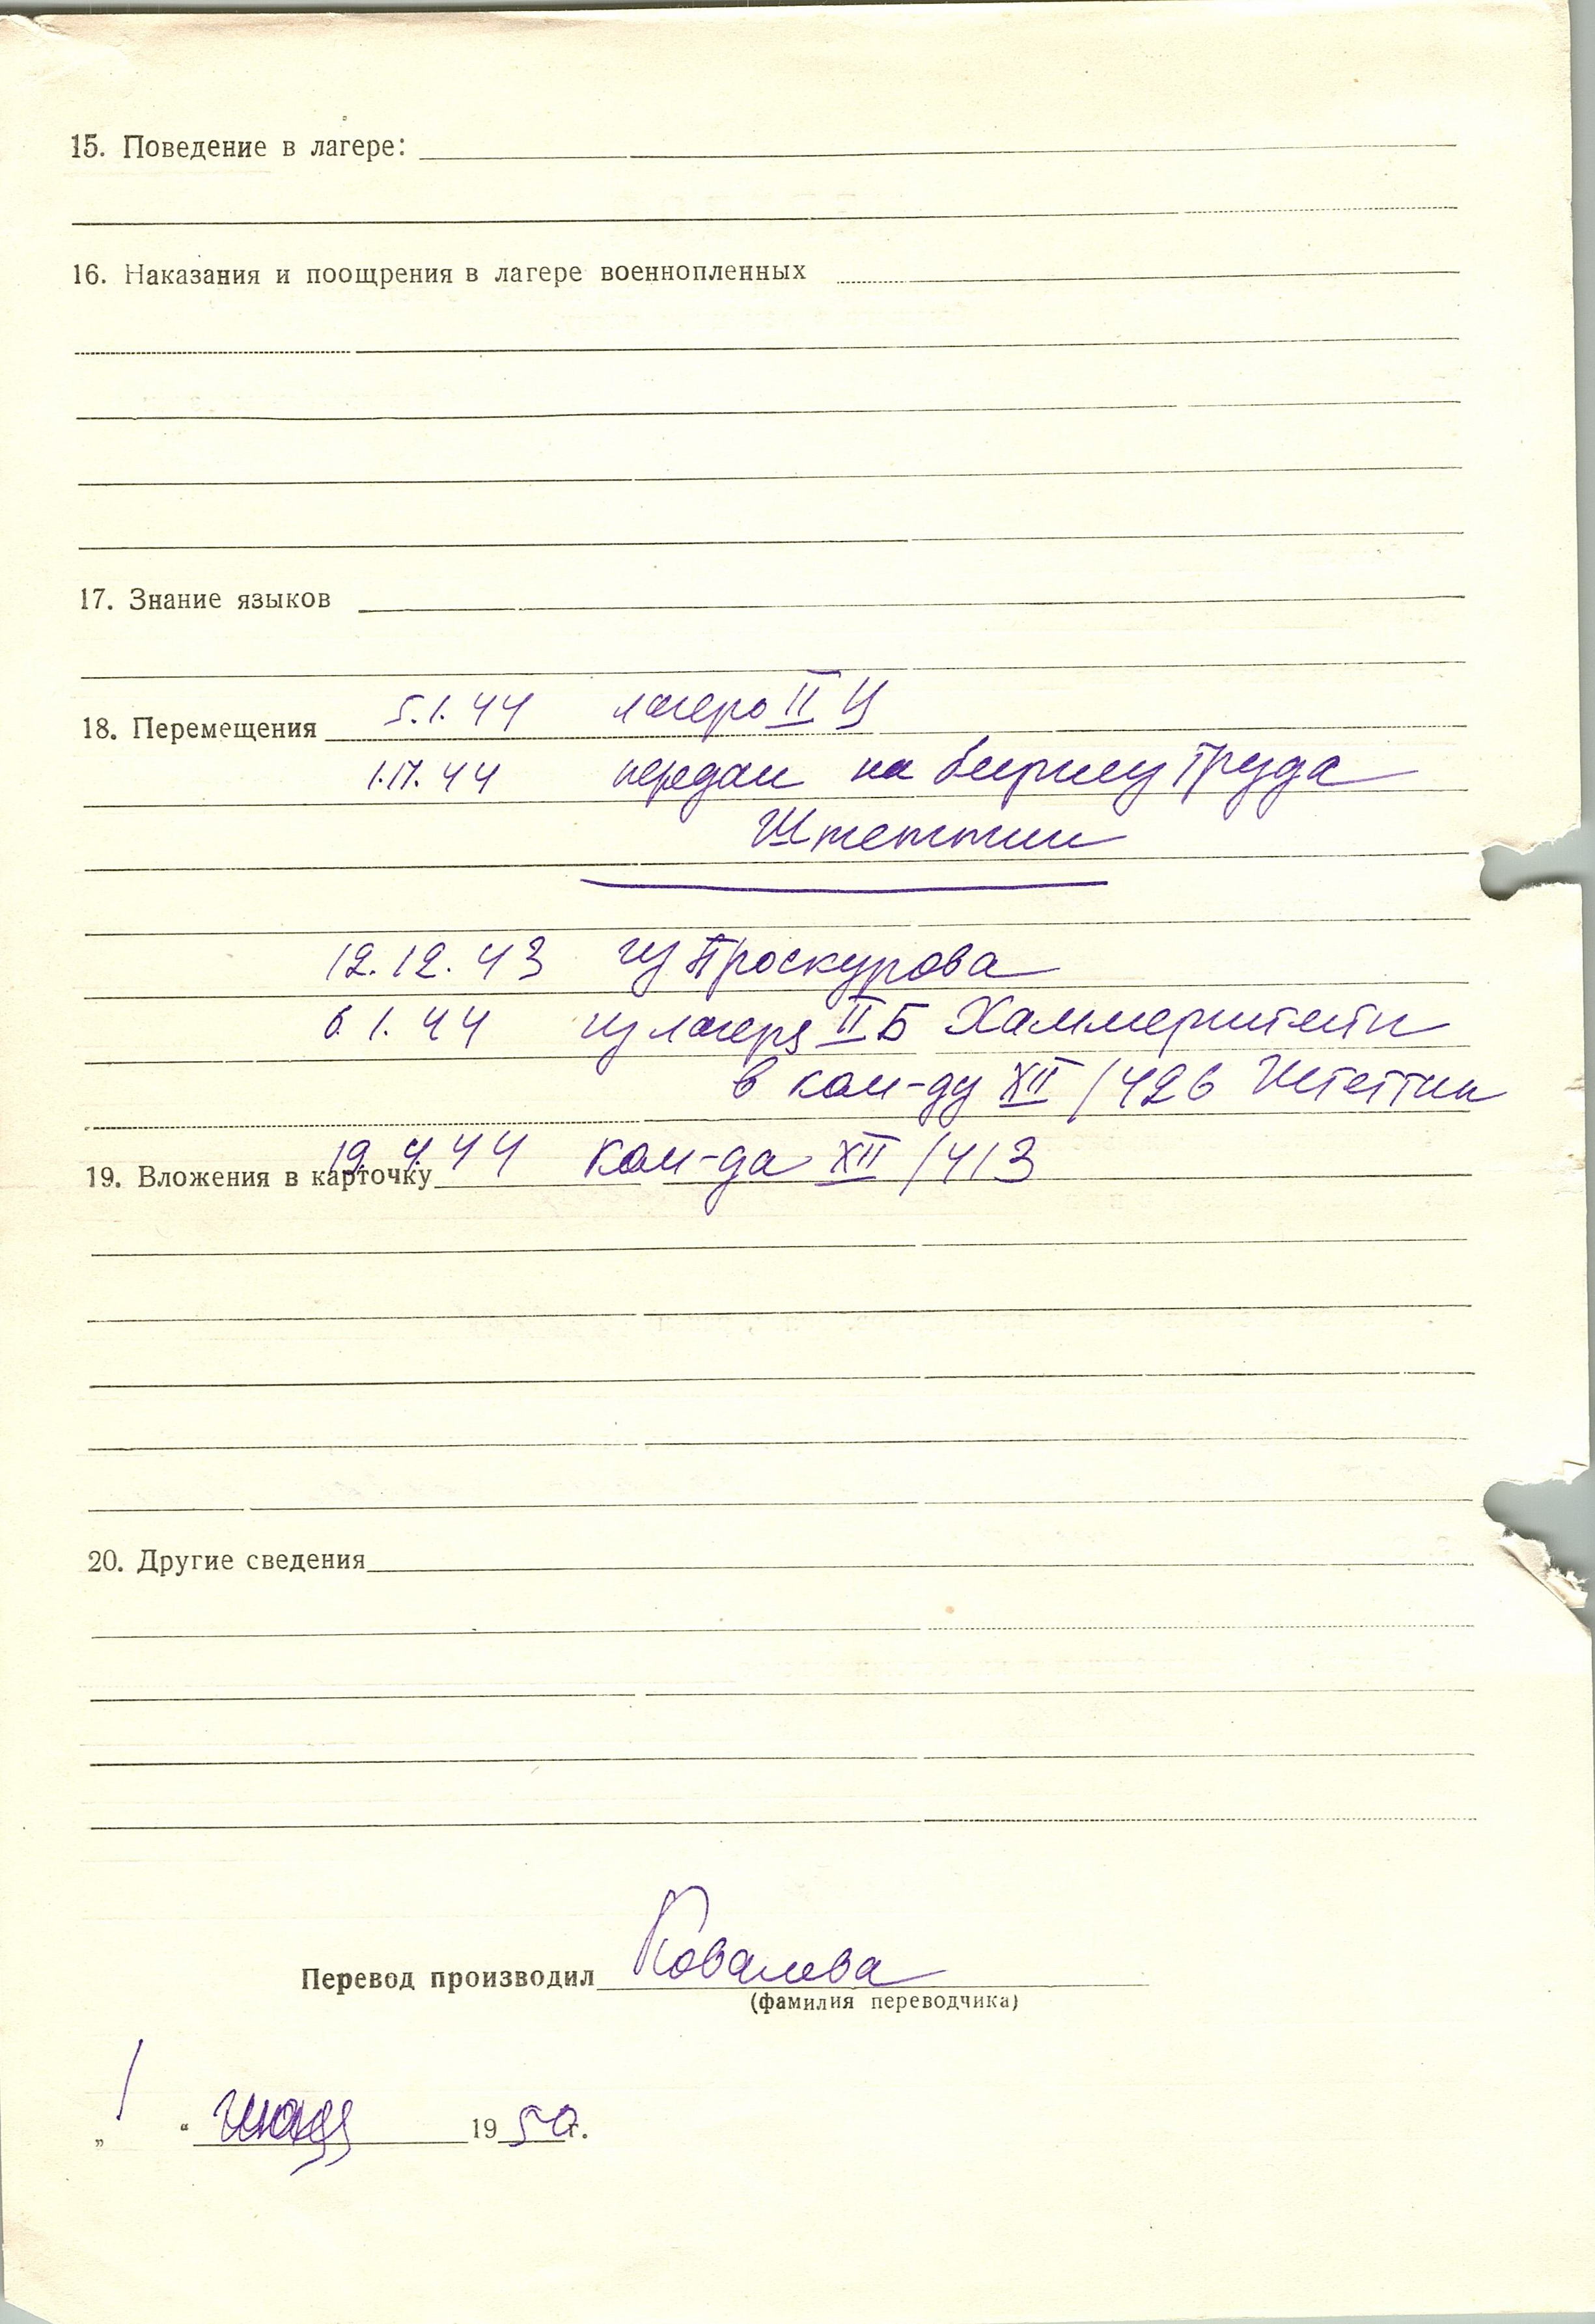 15. Поведение в лагере:
16. Наказания и поощрения в лагере военнопленных
17. Знание языков
18. Перемещения 5.1.44 лагерь II Ц
44 передан на биржу труда
Штеттин
12.12.43 из Проскурова
6.1.44 из лагеря II Б Хаммерштейн
в ком-ду XII/426 Штеттин
19.4.44 ком-да XII/413
19. Вложения в карточку
20. Другие сведения
Перевод производил Ковалева
(фамилия переводчика)
„1“ 1950г.